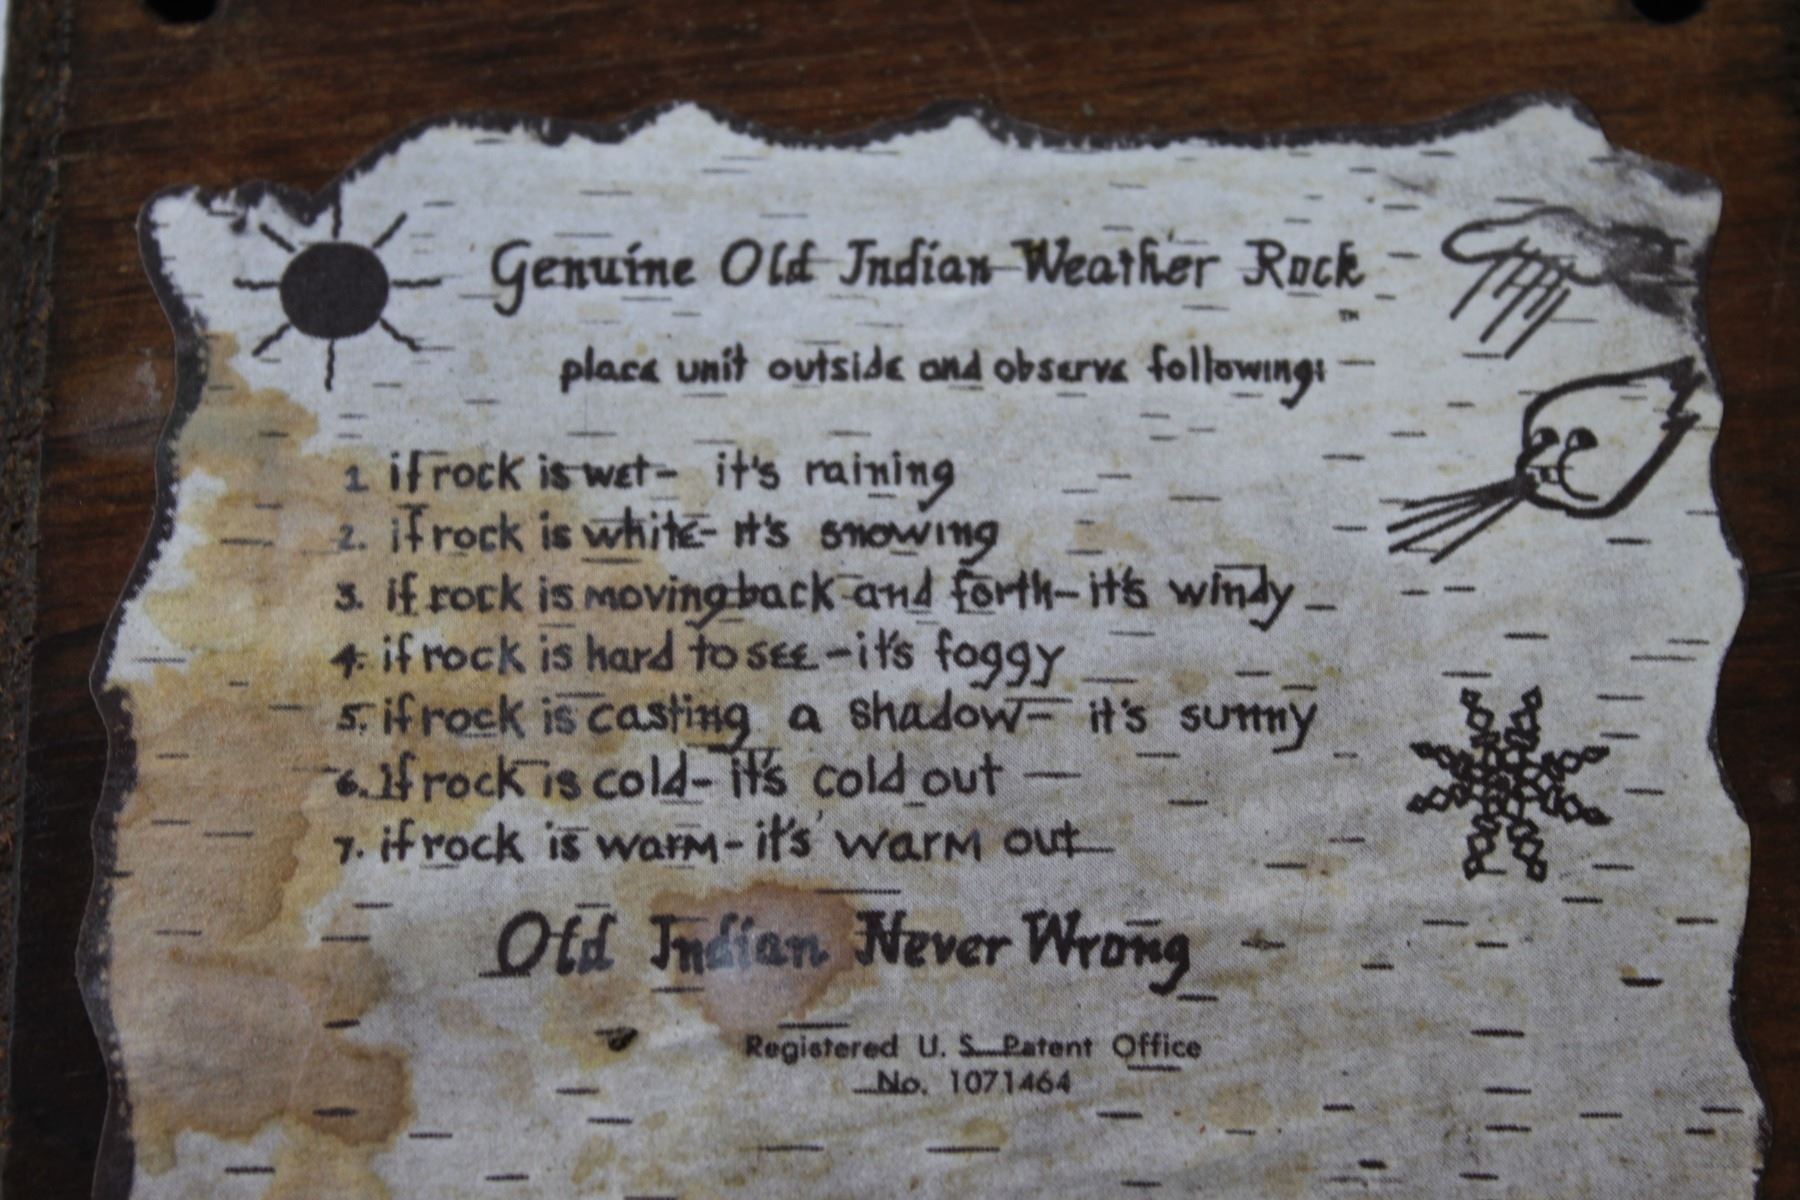 Genuine Old Indian Weather Rock
™
place unit outside and observe following:
1 if rock is wet - it's raining
2. if rock is white - it's snowing
3. if rock is moving back and forth - it's windy
4. if rock is hard to see - it's foggy
5. if rock is casting a shadow - it's sunny
6. If rock is cold - it's cold out
7. if rock is warm - it's warm out
Old Indian Never Wrong
Registered U. S. Patent Office
No. 1071464